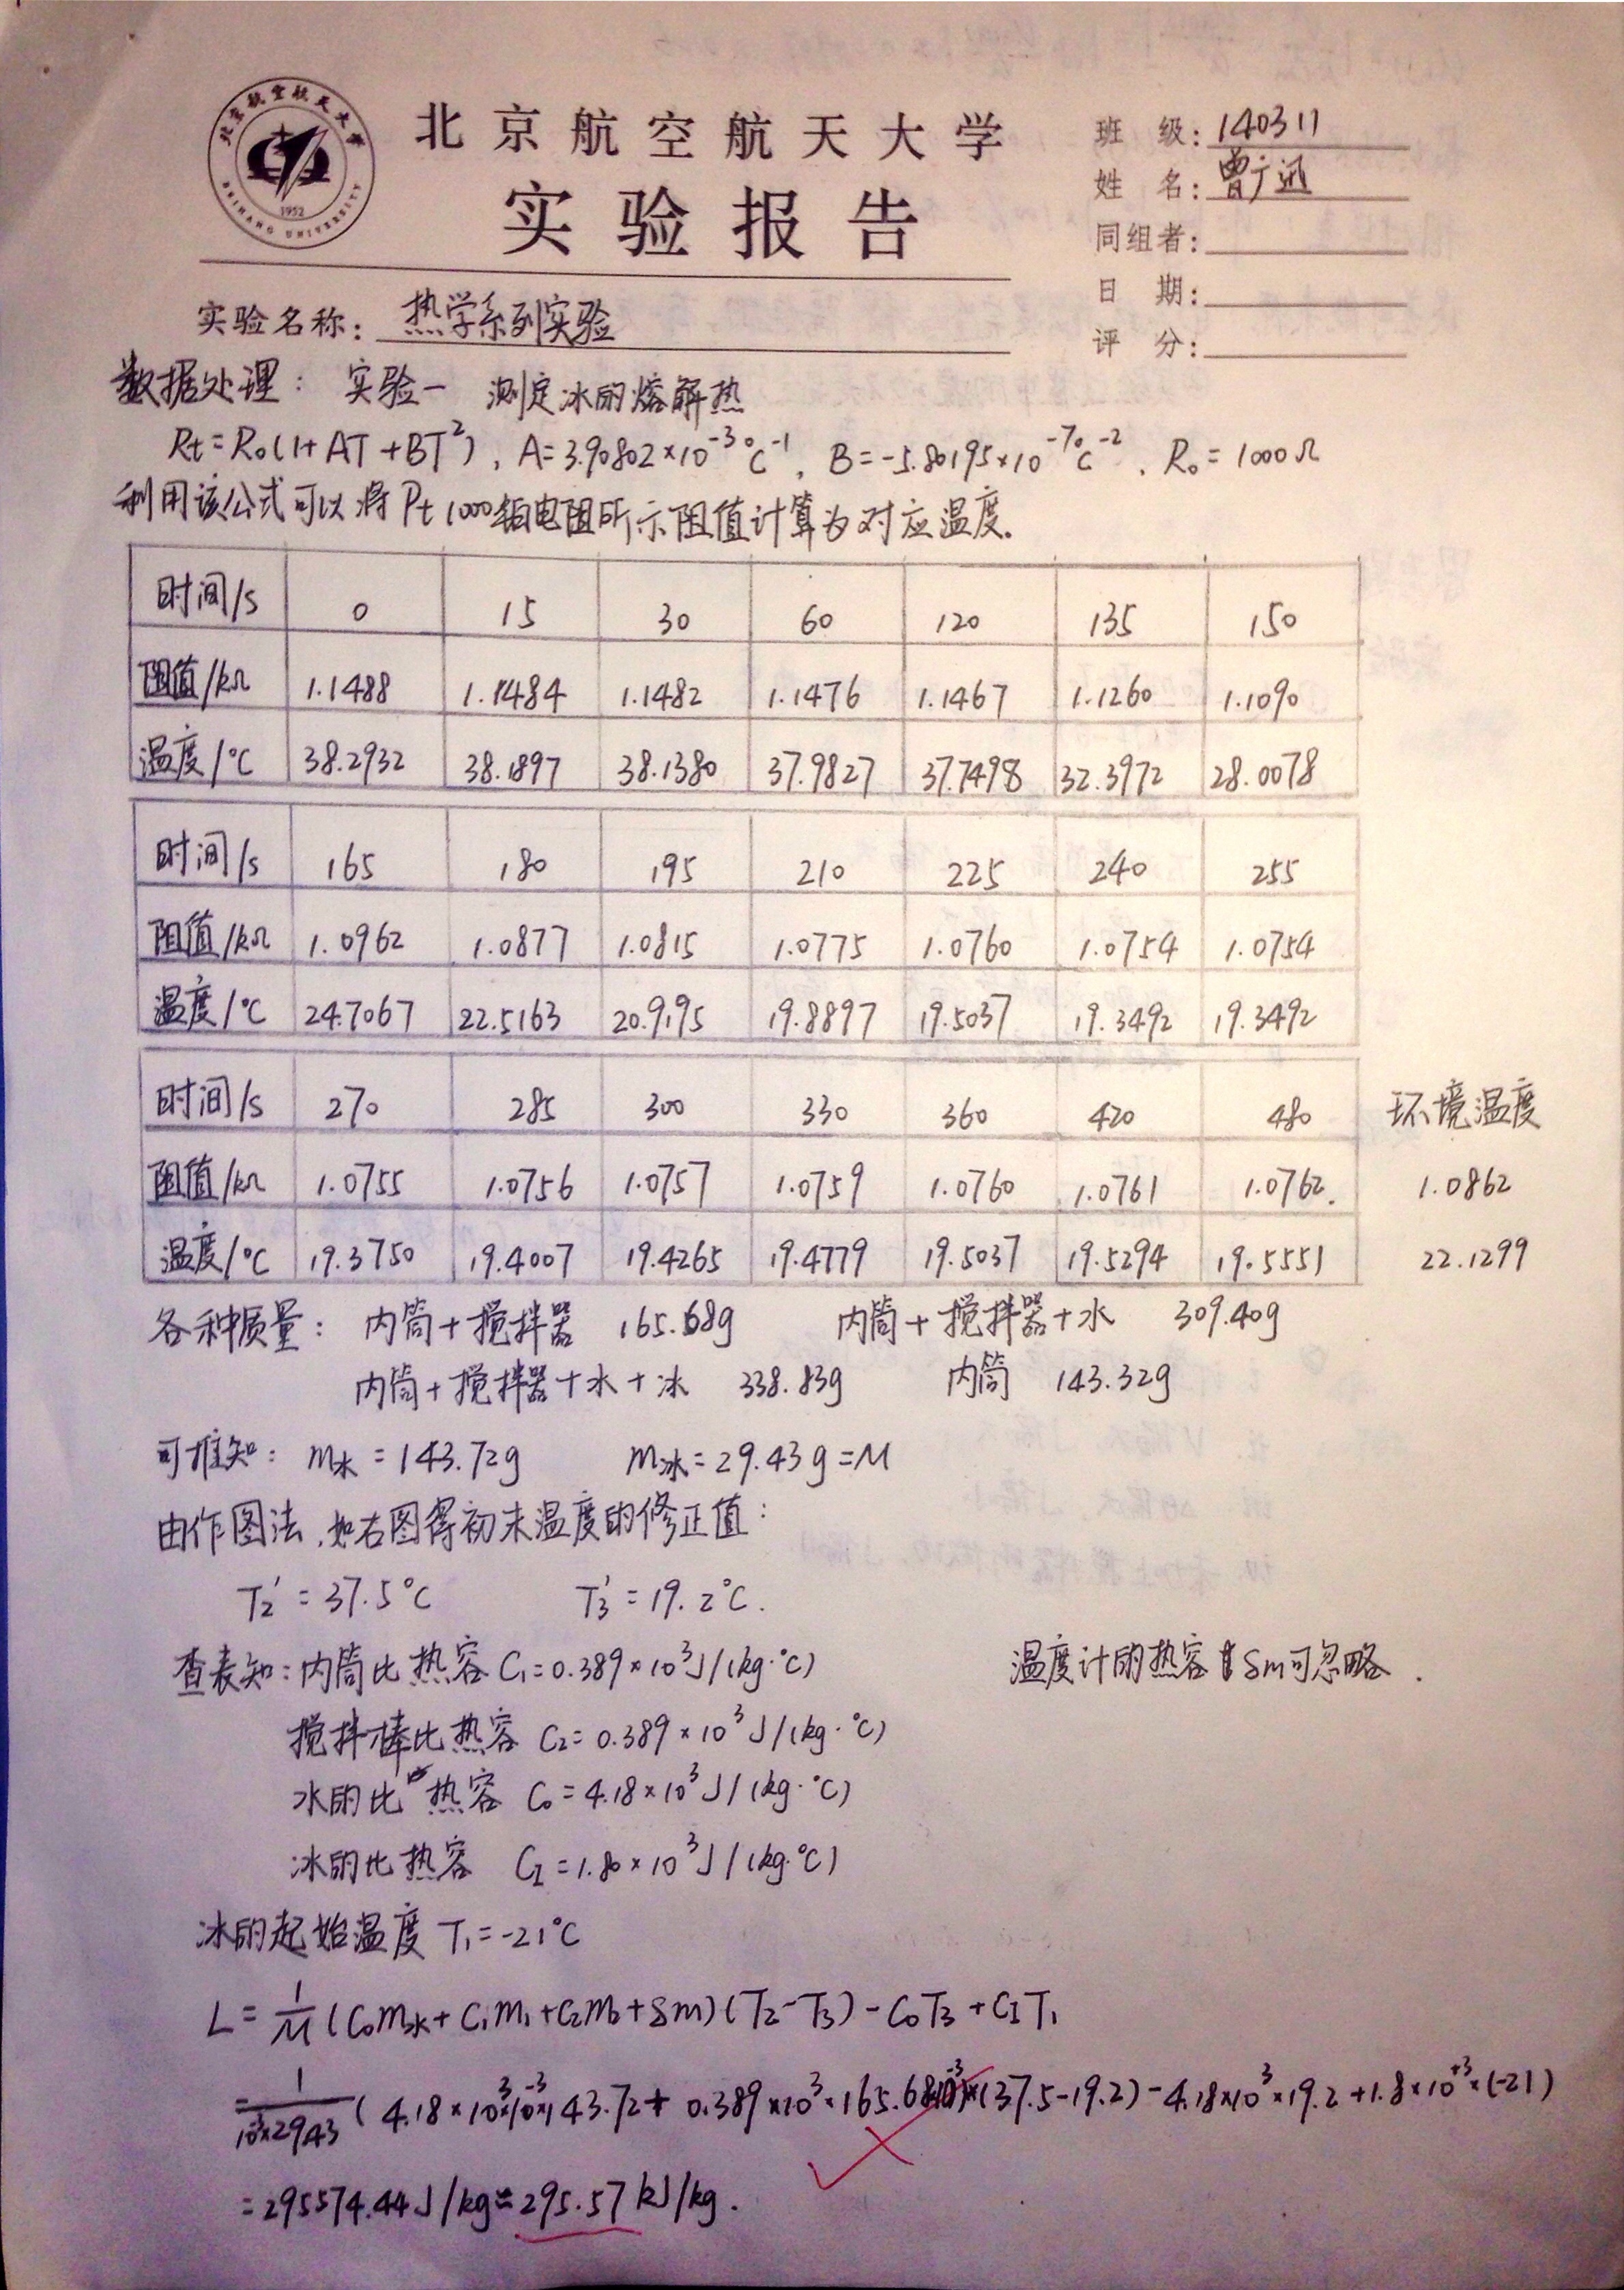 北京航空航天大学
BEIHANG UNIVERSITY
1952
北京航空航天大学
实验报告
班 级: 140311
姓 名: 曾广迅
同组者:
日 期:
评 分:
实验名称: 热学系列实验
数据处理: 实验一 测定冰的熔解热
Rt=R₀(1+AT+BT²), A=3.90802×10⁻³℃⁻¹, B=-5.80195×10⁻⁷℃⁻², R₀=1000Ω
利用该公式可以将Pt1000铂电阻所示阻值计算为对应温度.
时间/s 0 15 30 60 120 135 150
阻值/kΩ 1.1488 1.1484 1.1482 1.1476 1.1467 1.1260 1.1090
温度/℃ 38.2932 38.1897 38.1380 37.9827 37.7498 32.3972 28.0078
时间/s 165 180 195 210 225 240 255
阻值/kΩ 1.0962 1.0877 1.0815 1.0775 1.0760 1.0754 1.0754
温度/℃ 24.7067 22.5163 20.9195 19.8897 19.5037 19.3492 19.3492
时间/s 270 285 300 330 360 420 480 环境温度
阻值/kΩ 1.0755 1.0756 1.0757 1.0759 1.0760 1.0761 1.0762. 1.0862
温度/℃ 19.3750 19.4007 19.4265 19.4779 19.5037 19.5294 19.5551 22.1299
各种质量: 内筒+搅拌器 165.68g 内筒+搅拌器+水 309.40g
内筒+搅拌器+水+冰 338.83g 内筒 143.32g
可推知: m水=143.72g m冰=29.43g=M
由作图法,如右图得初末温度的修正值:
T₂'=37.5℃ T₃'=19.2℃.
查表知:内筒比热容C₁=0.389×10³J/(kg·℃) 温度计的热容δm可忽略.
搅拌棒比热容 C₂=0.389×10³J/(kg·℃)
水的比热容 C₀=4.18×10³J/(kg·℃)
冰的比热容 C_I=1.80×10³J/(kg·℃)
冰的起始温度 T₁=-21℃
L=1/M(C₀m水+C₁m₁+C₂m₂+δm)(T₂-T₃)-C₀T₃+C_IT₁
=1/(10⁻³×29.43)(4.18×10³×10⁻³×143.72+0.389×10³×165.68×10⁻³)×(37.5-19.2)-4.18×10³×19.2+1.8×10⁺³×(-21)
=295574.44J/kg≈295.57kJ/kg.